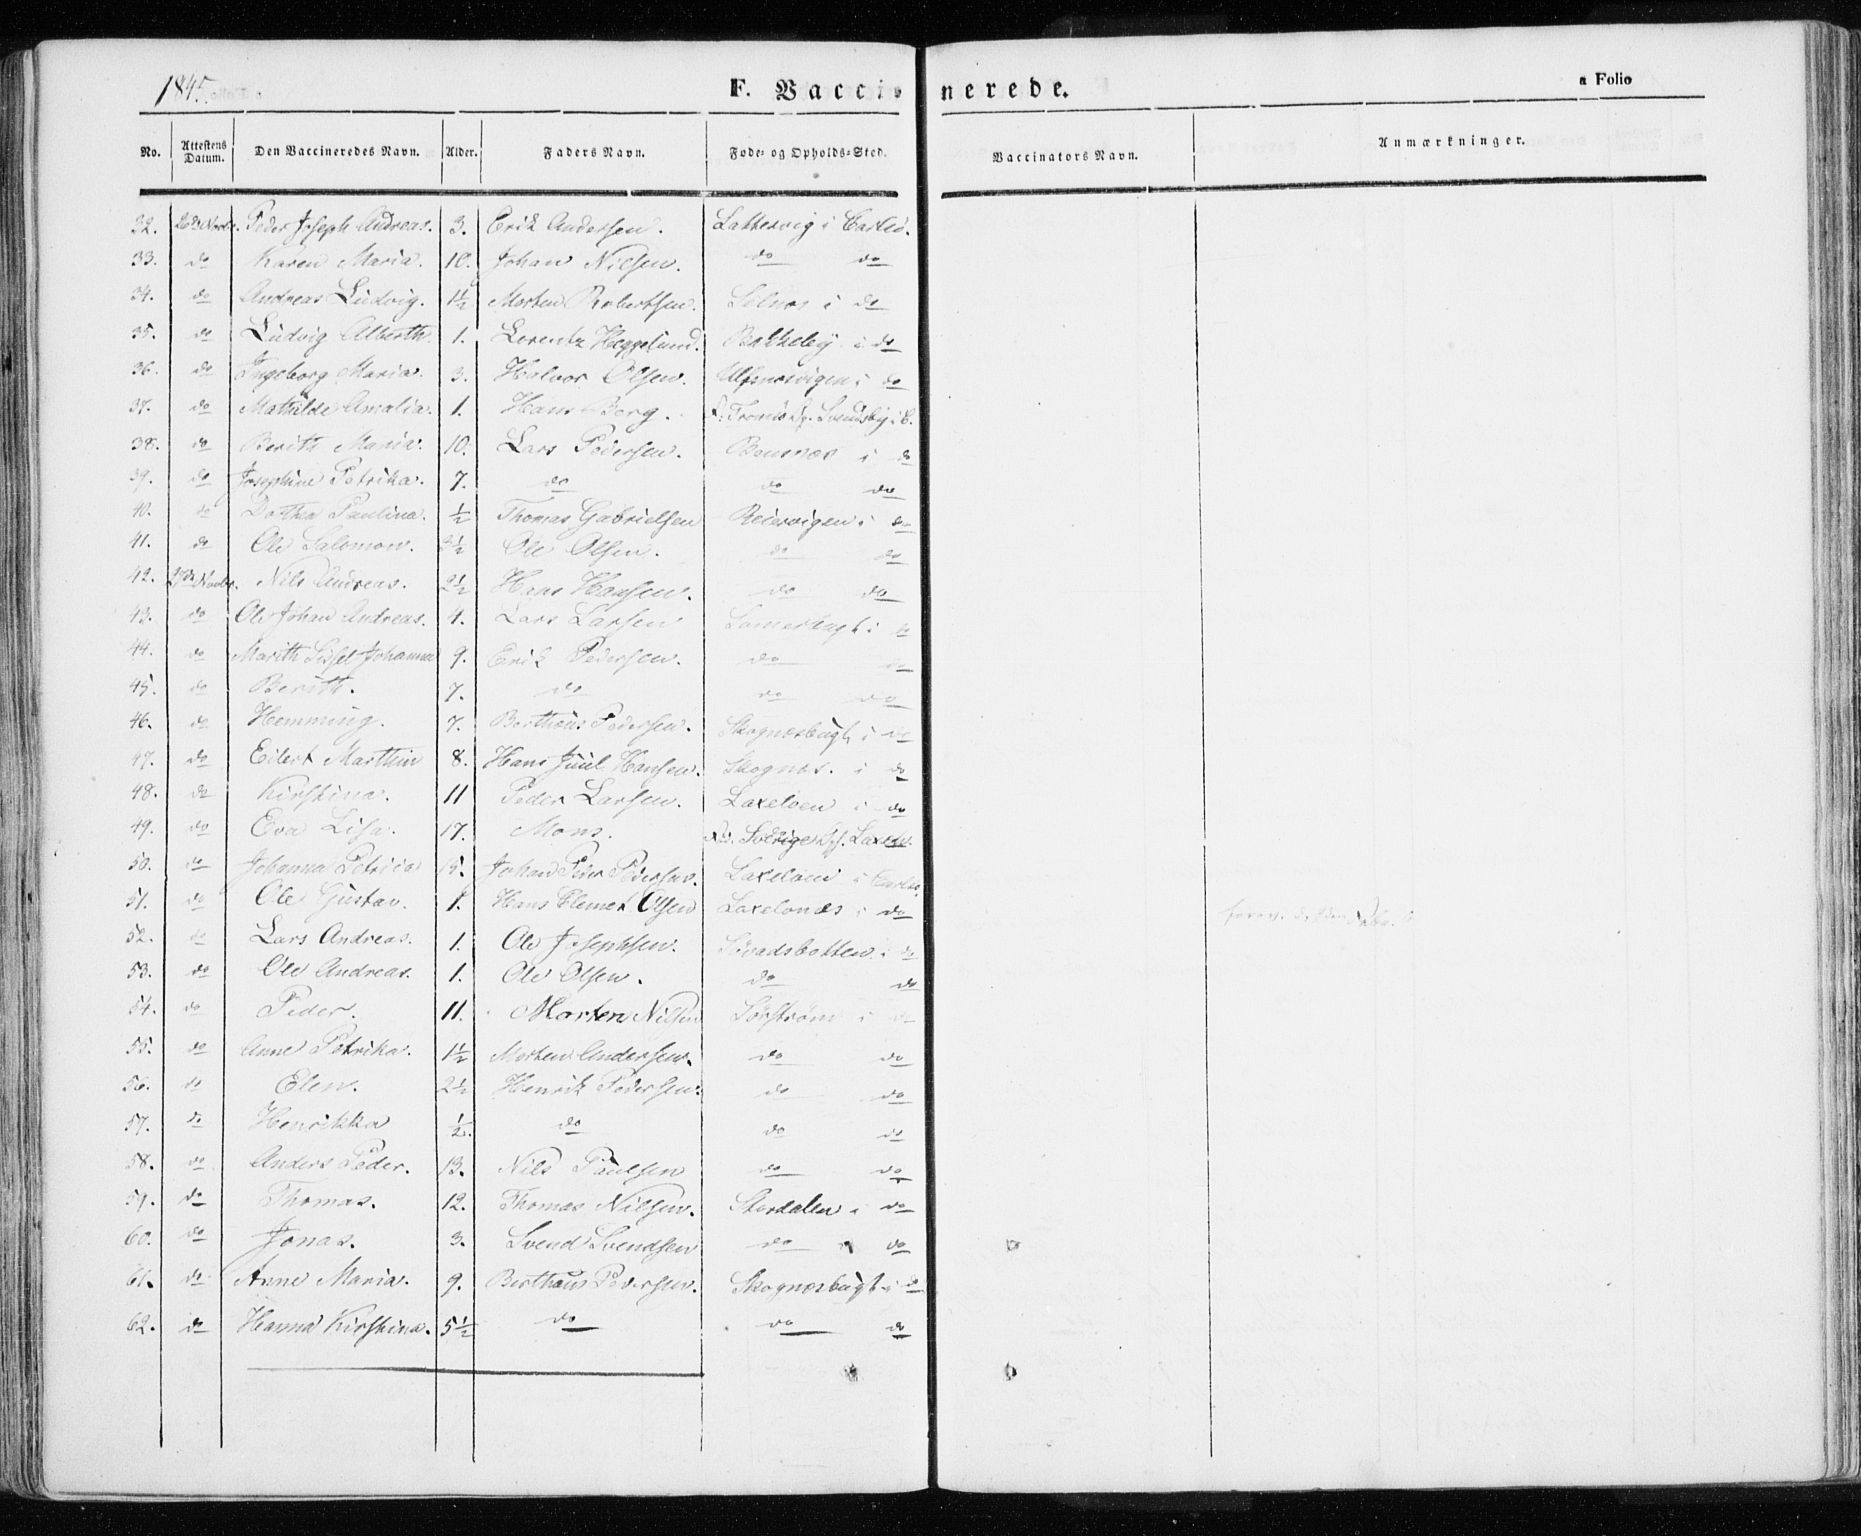 1845. F. Vaccinerede. a Folio
No. Attestens Datum. Den Vaccineredes Navn. Alder. Faders Navn. Føde- og Opholds-Sted. Vaccinators Navn. Anmærkninger.
32. 26de Novbr. Peder Joseph Andreas. 3. Erik Andersen. Lattervig i Carlsö.
33. do Karen Maria. 10. Johan Nilsen. do do
34. do Andreas Ludvig. 1½ Morten Robertsen. Selnæs i do
35. do Ludvig Alberth. 1. Lorentz Heggelund. Bakkeby i do
36. do Ingeborg Maria. 3. Halvor Olsen. i do
37. do Mathilde Amalia. 1. Hans Berg. Tromsö Svendsby i C.
38. do Berith Maria. 10. Lars Pedersen. Bensnæs i do
39. do Josephine Petrika. 7. do do do
40. do Dorthea Paulina. ½ Thomas Gabrielsen Reiervigen i do
41. do Ole Salomon. 3½ Ole Olsen. do do
42. Novbr. Nils Andreas. 2½ Hans Hansen. do do
43. do Ole Johan Andreas. 4. Lars Larsen i do
44. do Marith Sissel Johanna 9. Erik Pedersen. do do
45. do Berith. 7. do do do
46. do Hemming. 7. Bertheus Pedersen. Skognæsbugt i do
47. do Eilert Marthin 8. Hans Juul Hansen. Skognæs. i do
48. do Kirstina. 11 Peder Larsen. Laxeloen i do
49. do Eva Lisa. 17. Mons. Sverige
50. do Johanna Petrica 15. Johan Peder Pedersen. i Carlsö
51. do Ole Gustav. 1. Hans Clemet Olsen Laxelvnæs i do
52. do Lars Andreas. 1. Ole Josephsen. i do
53. do Ole Andreas. 1. Ole Olsen. do do
54. do Peder. 11. Morten Nilsen Sörström i do
55. do Anne Petrika. 1½ Morten Andersen. do do
56. do Elen. 2½ Henrik Pedersen. do do
57. do Henrikka ½. do do do
58. do Anders Peder. 13. Nils Paulsen do do
59. do Thomas. 12. Thomas Nilsen. Stordalen i do
60. do Jonas. 3. Svend Svendsen do do
61. do Anne Maria. 9. Berthæus Pedersen. Skognæsbugt i do
62. do Hanna Kirstina. 5½ do do do